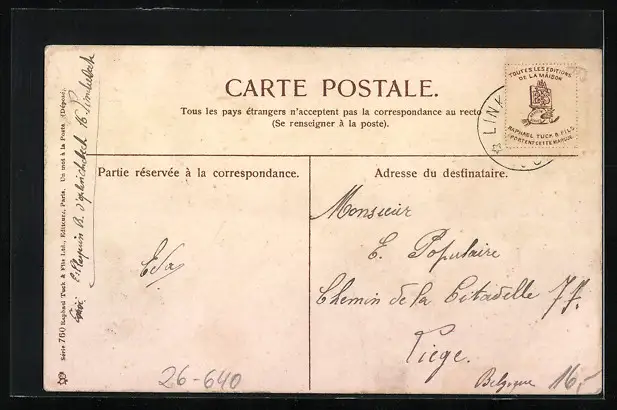 CARTE POSTALE.
Tous les pays étrangers n'acceptent pas la correspondance au recto
(Se renseigner à la poste).
TOUTES LES EDITIONS
DE LA MAISON
RAPHAEL TUCK & FILS
PORTENT CETTE MARQUE
LIN
Partie réservée à la correspondance.
Adresse du destinataire.
Monsieur
E. Populaire
Chemin de la Citadelle 77.
Liege.
Belgique
26-640
16,-
Série 760 Raphael Tuck & Fils Ltd., Editeurs, Paris. Un mot à la Poste (Déposé).